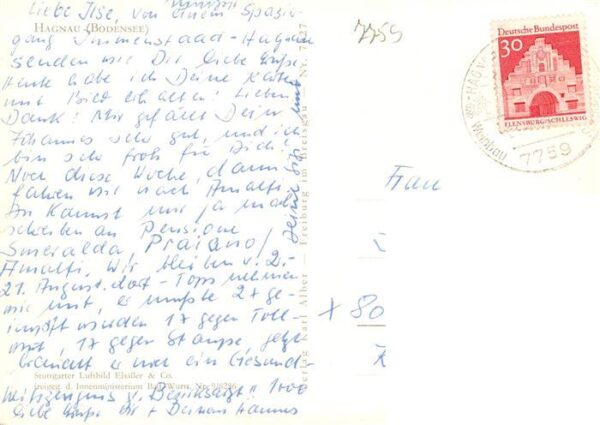 Liebe Ilse, von einem Spazier-
gang Immenstaad-Hagnau
senden wir Dir liebe Grüße
Heute habe ich Deine Karte
mit Bild erhalten! Lieben
Dank! Mir gefällt Dein
Johannes sehr gut, und ich
bin sehr froh für Dich!
Noch diese Woche, dann
fahren wir nach Amalfi.
Du kannst mir ja mal
schreiben an Pensione
Smeralda, Praiano/
Amalfi. Wir bleiben v. 2.-
21. August dort - Topsy nehmen
wir mit, er mußte 2x ge-
impft werden 1x gegen Toll-
wut, 1x gegen Staupe, jetzt
braucht er nur ein Gesund-
heitszeugnis v. Bezirksarzt! 1000
liebe Grüße Dir + Deinem Hannes
HAGNAU (BODENSEE)
Verlag Karl Alber — Freiburg im Breisgau Nr. 7527
Stuttgarter Luftbild Elsäßer & Co.
freigeg. d. Innenministerium Bad.-Württ. Nr. 9/8286
7759
Deutsche Bundespost
30
FLENSBURG/SCHLESWIG
HAGNAU
7759
Frau
x 80